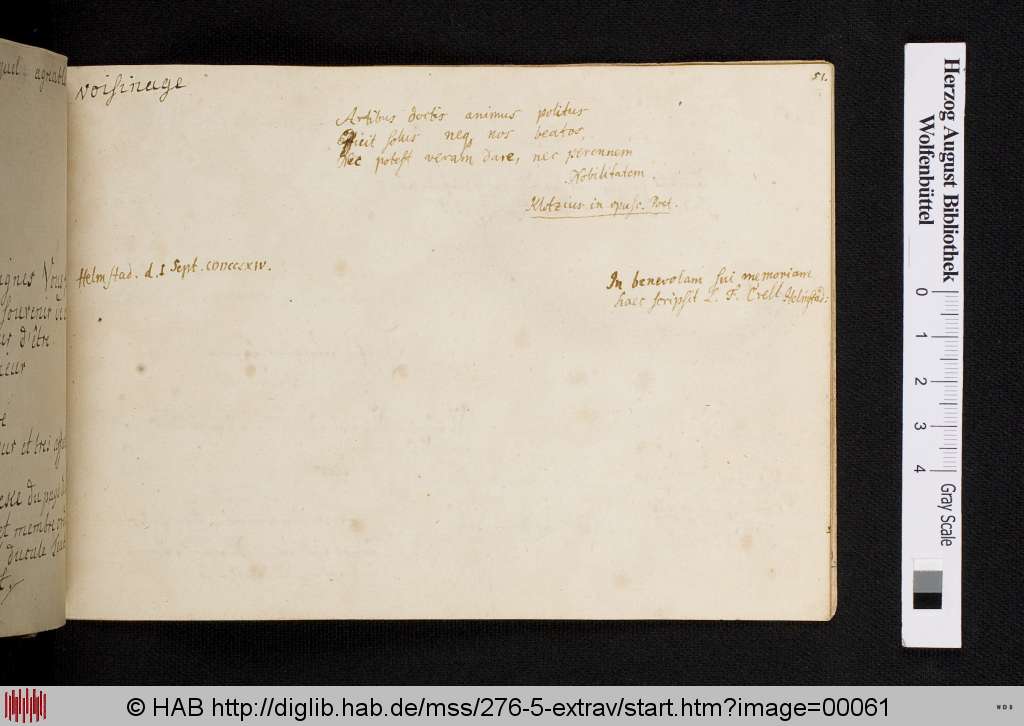 voisinage
51.
Artibus doctis animus politus
Efficit solus neq nos beatos,
Nec potest veram dare, nec perennem
Nobilitatem.
Klotzius in opusc. Poet.
Helmstad. d. I Sept. CIↃIↃCCLXIV.
In benevolam sui memoriam
haec scripsit L. F. Crell Helmstad:
agreabl
souvenir
d'être
et tres
du pays
et membre
Herzog August Bibliothek
Wolfenbüttel
0
1
2
3
4
Gray Scale
© HAB http://diglib.hab.de/mss/276-5-extrav/start.htm?image=00061